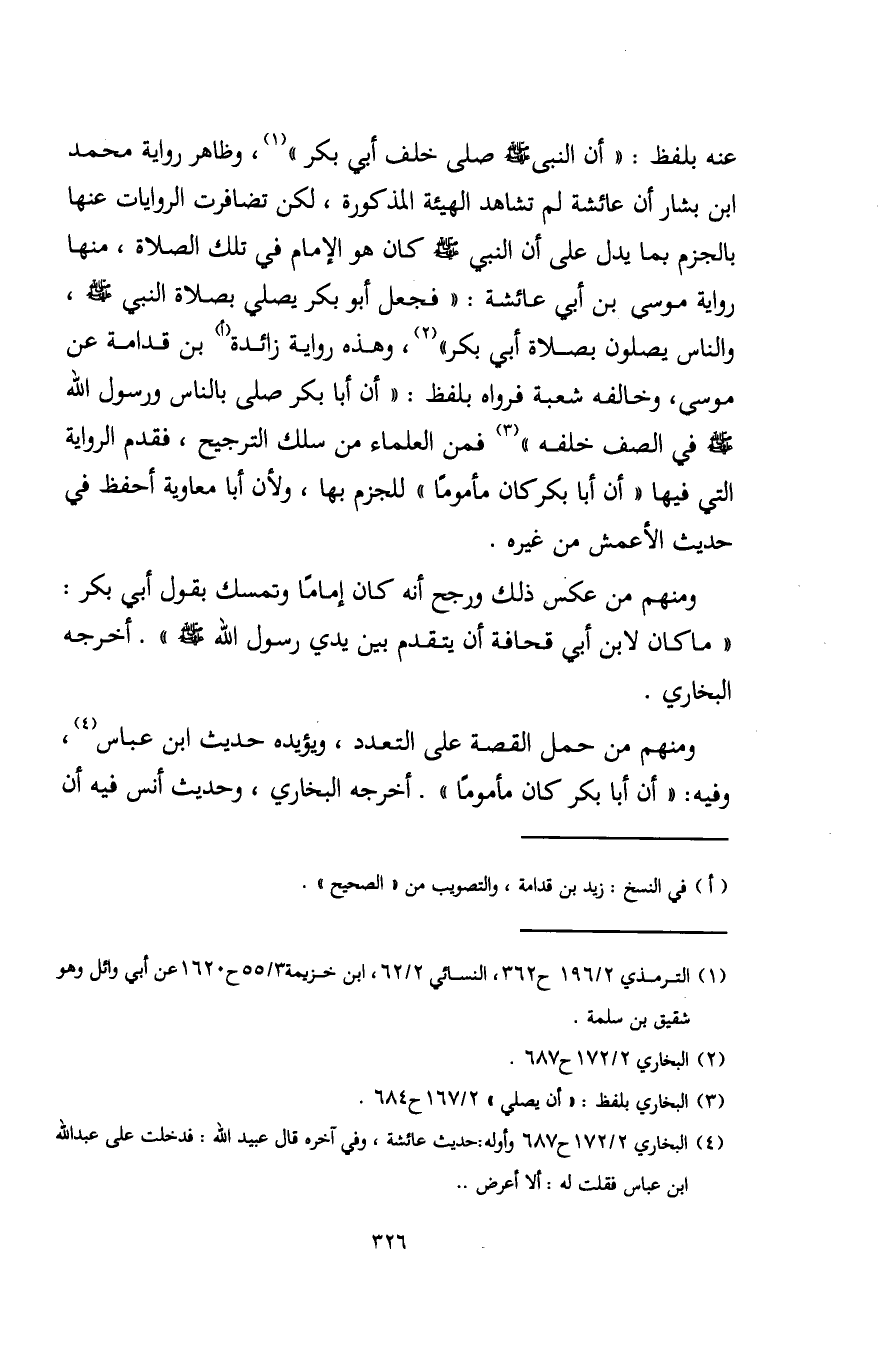 عنه بلفظ : « أن النبي ﷺ صلى خلف أبي بكر »(١) ، وظاهر رواية محمد
ابن بشار أن عائشة لم تشاهد الهيئة المذكورة ، لكن تضافرت الروايات عنها
بالجزم بما يدل على أن النبي ﷺ كان هو الإمام في تلك الصلاة ، منها
رواية موسى بن أبي عائشة : « فجعل أبو بكر يصلي بصلاة النبي ﷺ ،
والناس يصلون بصلاة أبي بكر»(٢) ، وهذه رواية زائدة(أ) بن قدامة عن
موسى، وخالفه شعبة فرواه بلفظ : « أن أبا بكر صلى بالناس ورسول الله
ﷺ في الصف خلفه »(٣) فمن العلماء من سلك الترجيح ، فقدم الرواية
التي فيها « أن أبا بكر كان مأمومًا » للجزم بها ، ولأن أبا معاوية أحفظ في
حديث الأعمش من غيره .
ومنهم من عكس ذلك ورجح أنه كان إمامًا وتمسك بقول أبي بكر :
« ماكان لابن أبي قحافة أن يتقدم بين يدي رسول الله ﷺ » . أخرجه
البخاري .
ومنهم من حمل القصة على التعدد ، ويؤيده حديث ابن عباس(٤) ،
وفيه: « أن أبا بكر كان مأمومًا » . أخرجه البخاري ، وحديث أنس فيه أن
( أ ) في النسخ : زيد بن قدامة ، والتصويب من « الصحيح » .
(١) الترمذي ١٩٦/٢ ح٣٦٢، النسائي ٦٢/٢، ابن خزيمة٥٥/٣ح١٦٢٠عن أبي وائل وهو
شقيق بن سلمة .
(٢) البخاري ١٧٢/٢ح٦٨٧ .
(٣) البخاري بلفظ : « أن يصلي » ١٦٧/٢ح٦٨٤ .
(٤) البخاري ١٧٢/٢ح٦٨٧ وأوله:حديث عائشة ، وفي آخره قال عبيد الله : فدخلت على عبدالله
ابن عباس فقلت له : ألا أعرض ..
٣٢٦